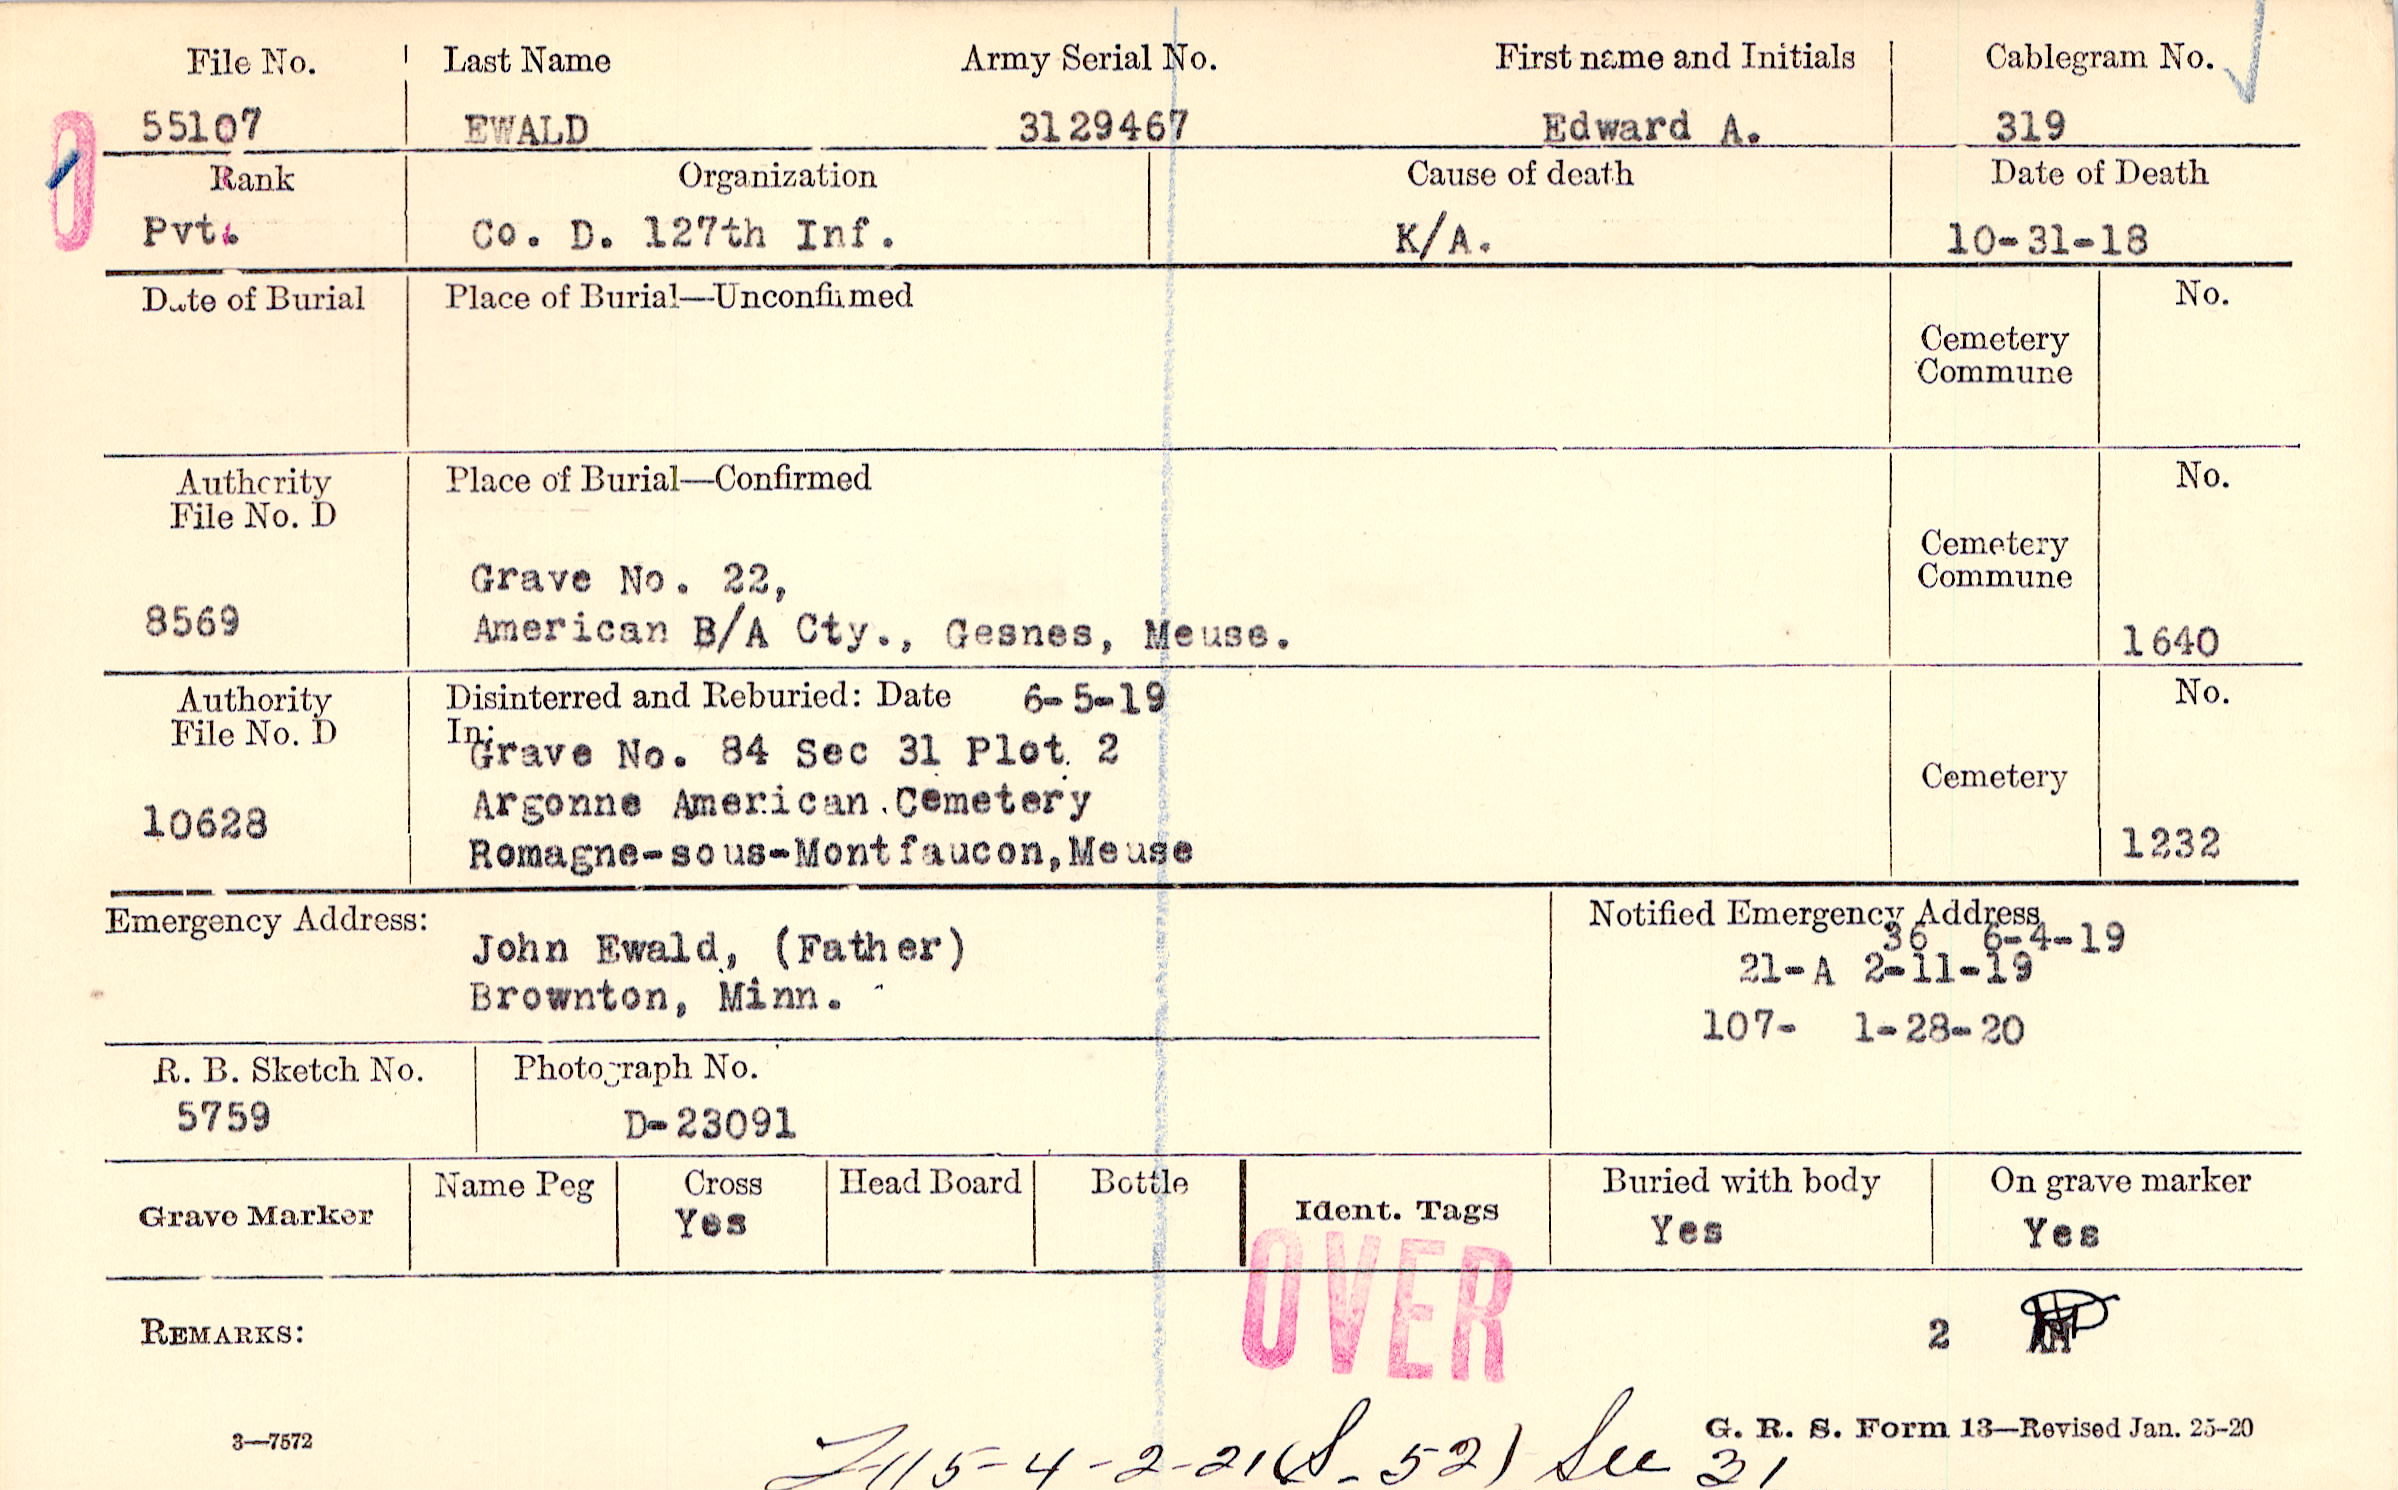 File No. Last Name Army Serial No. First name and Initials Cablegram No.
55107 EWALD 3129467 Edward A. 319
Rank Organization Cause of death Date of Death
Pvt. Co. D. 127th Inf. K/A. 10-31-18
Date of Burial Place of Burial—Unconfirmed No.
Cemetery
Commune
Authority Place of Burial—Confirmed No.
File No. D
Cemetery
Commune
Grave No. 22,
8569 American B/A Cty., Gesnes, Meuse. 1640
Authority Disinterred and Reburied: Date 6-5-19 No.
File No. D In:
Grave No. 84 Sec 31 Plot 2
Cemetery
Argonne American Cemetery
10628
Romagne-sous-Montfaucon, Meuse 1232
Emergency Address: Notified Emergency Address
John Ewald, (Father) 36 6-4-19
21-A 2-11-19
Brownton, Minn.
107- 1-28-20
R. B. Sketch No. Photograph No.
5759 D-23091
Grave Marker Name Peg Cross Head Board Bottle Ident. Tags Buried with body On grave marker
Yes Yes Yes
OVER
REMARKS: 2
G. R. S. Form 13—Revised Jan. 25-20
3—7572
5-4-2-21 (S-52) Sec 31